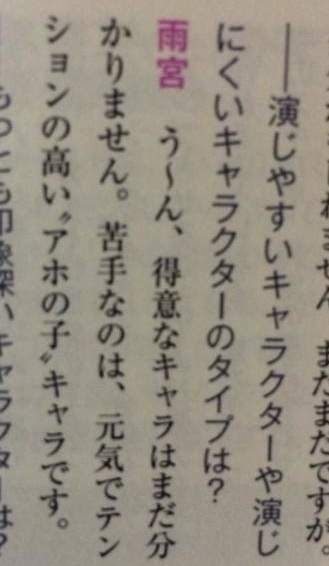 まだまだですが。
――演じやすいキャラクターや演じ
にくいキャラクターのタイプは？
雨宮　う～ん、得意なキャラはまだ分
かりません。苦手なのは、元気でテン
ションの高い〝アホの子〟キャラです。
もっとも印象深いキャラクターは？